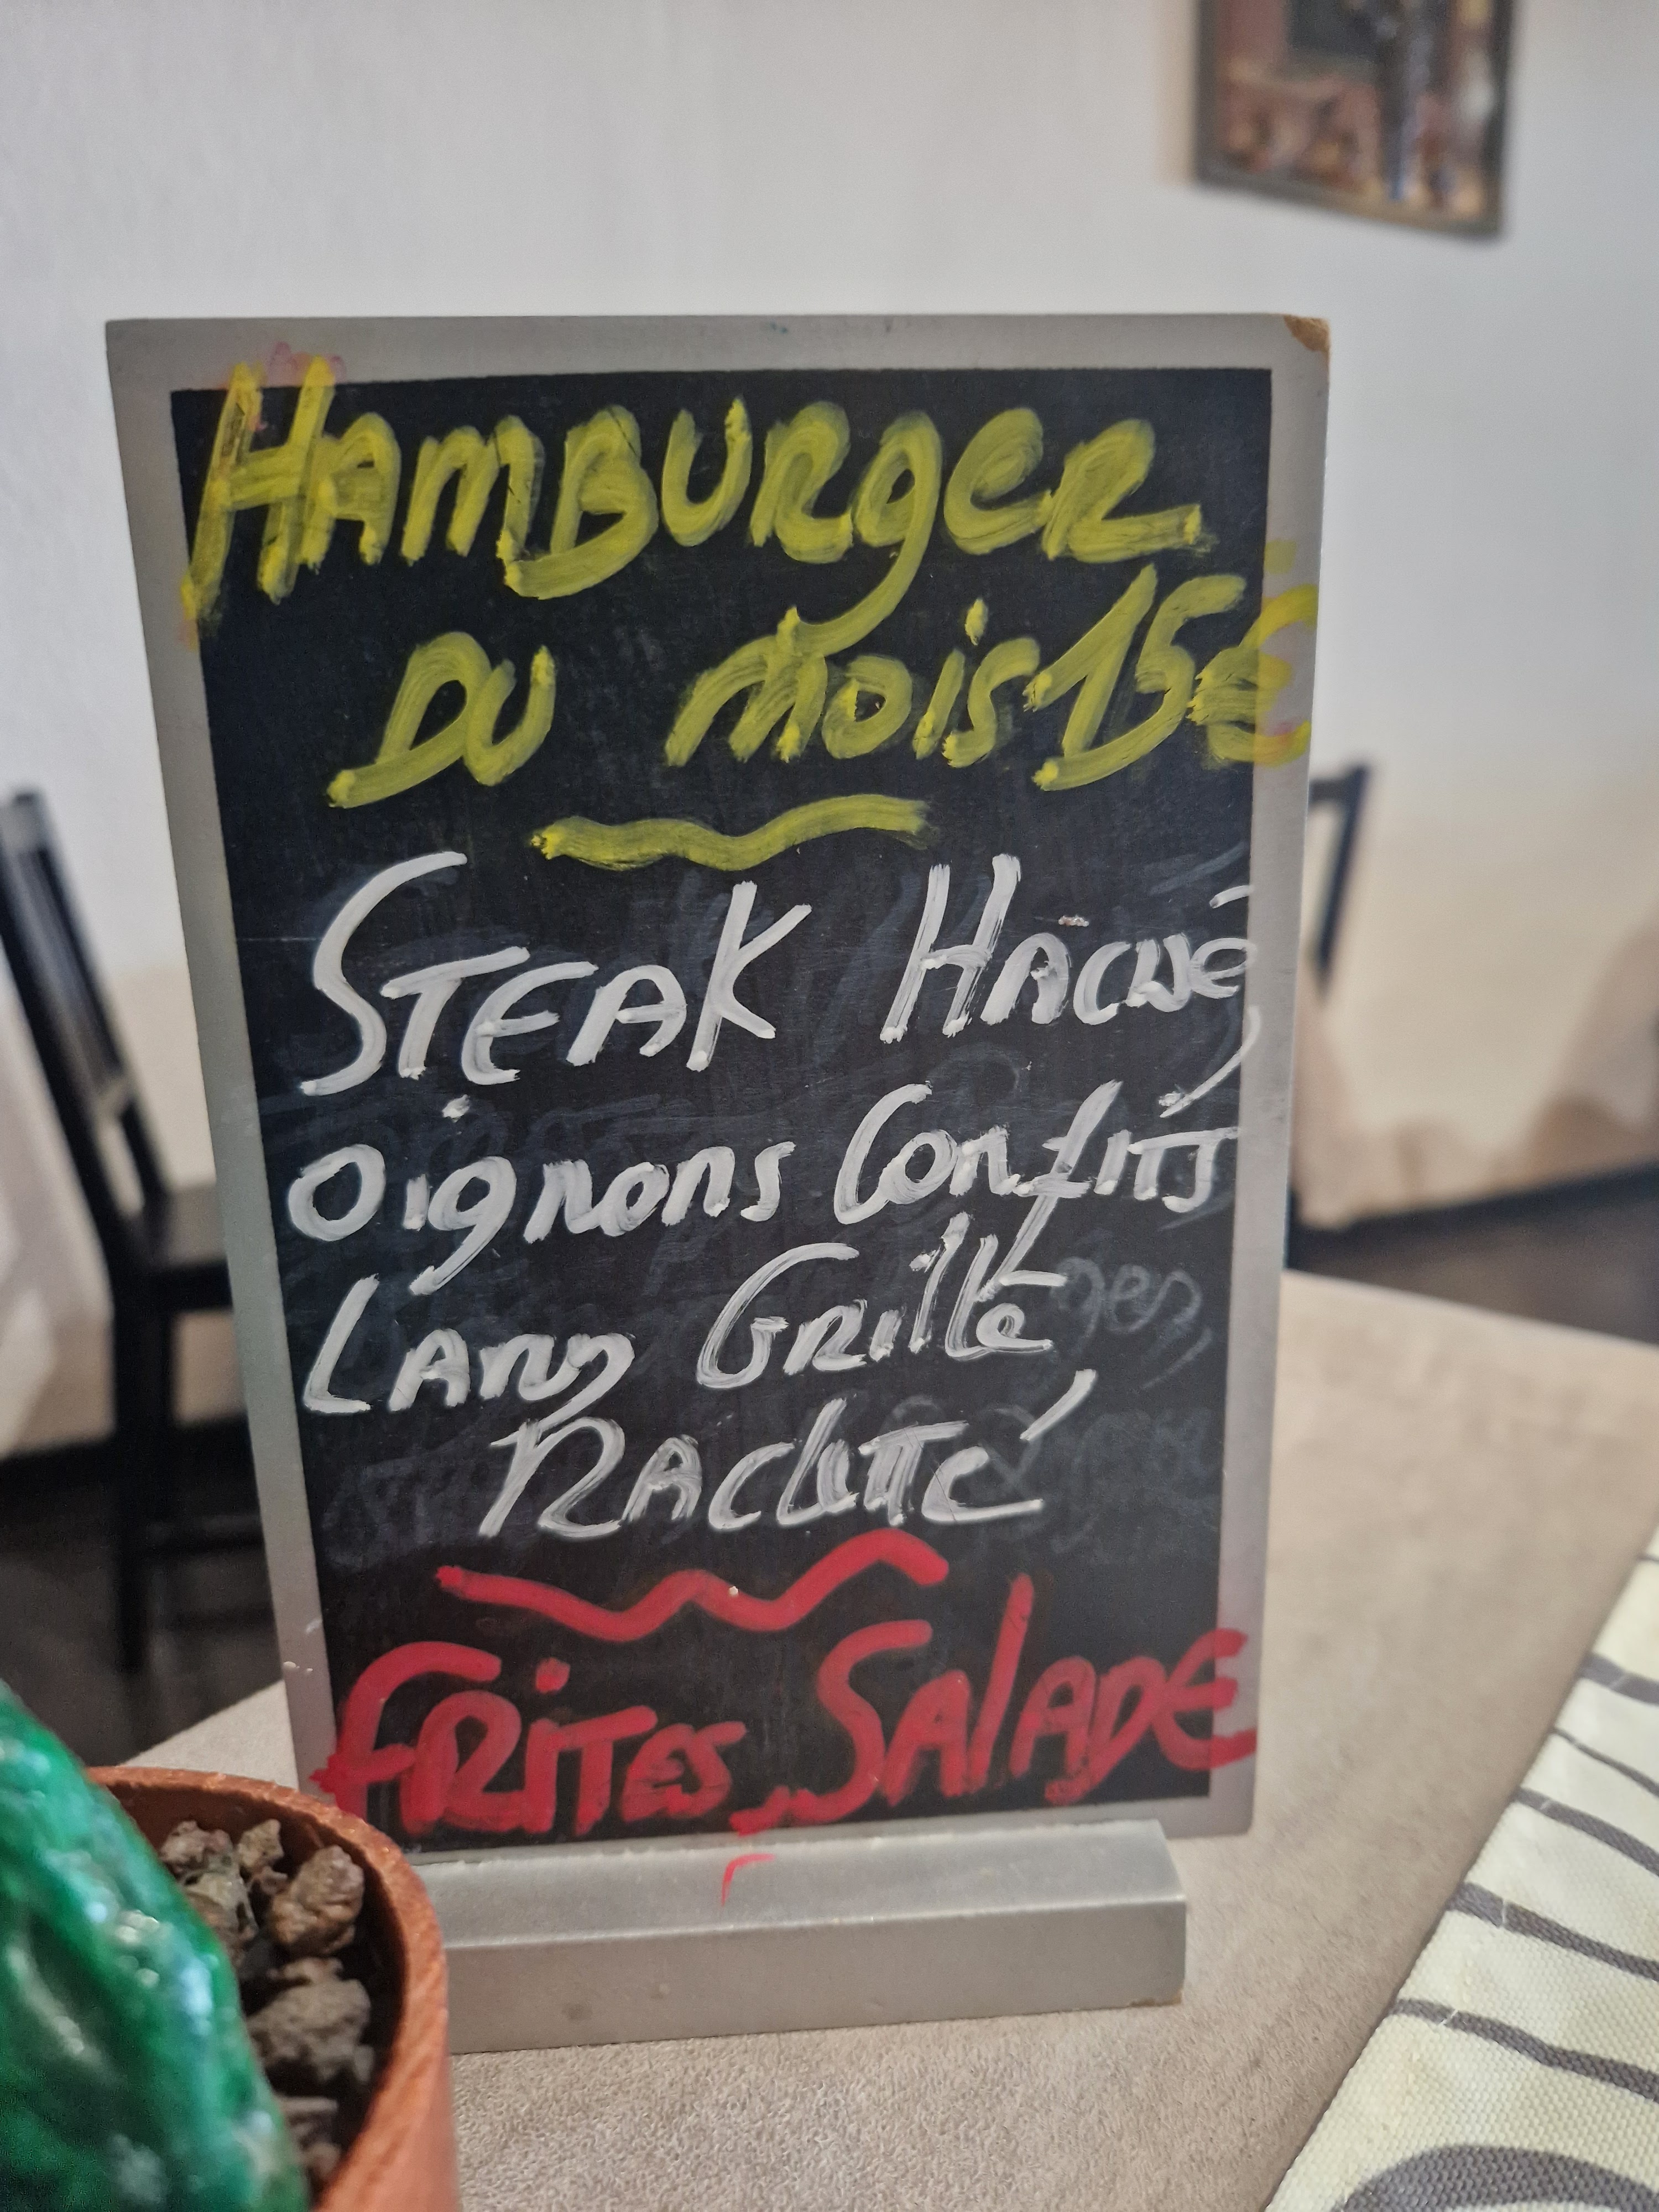 Hamburger
du mois 15€
Steak Haché,
oignons Confits
Lard Grillé
Raclette
Frites, Salade